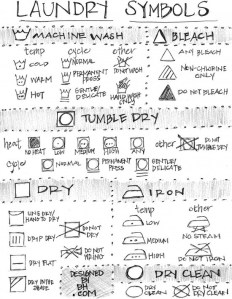 LAUNDRY SYMBOLS
MACHINE WASH
temp cycle other
COLD NORMAL DO NOT WASH
WARM PERMANENT PRESS HAND WASH ONLY
HOT GENTLE/ DELICATE
BLEACH
ANY BLEACH
NON-CHLORINE ONLY
DO NOT BLEACH
TUMBLE DRY
heat NO HEAT LOW MEDIUM HIGH other DO NOT TUMBLE DRY
cycle NORMAL PERMANENT PRESS GENTLE/ DELICATE
DRY
LINE DRY/ HANG TO DRY
DO NOT DRY
DRIP DRY
DO NOT WRING
DRY FLAT
DRY IN THE SHADE
DESIGNED BY
.COM
IRON
temp other
LOW NO STEAM
MEDIUM
HIGH DO NOT IRON
DRY CLEAN
DRY CLEAN DO NOT DRY CLEAN